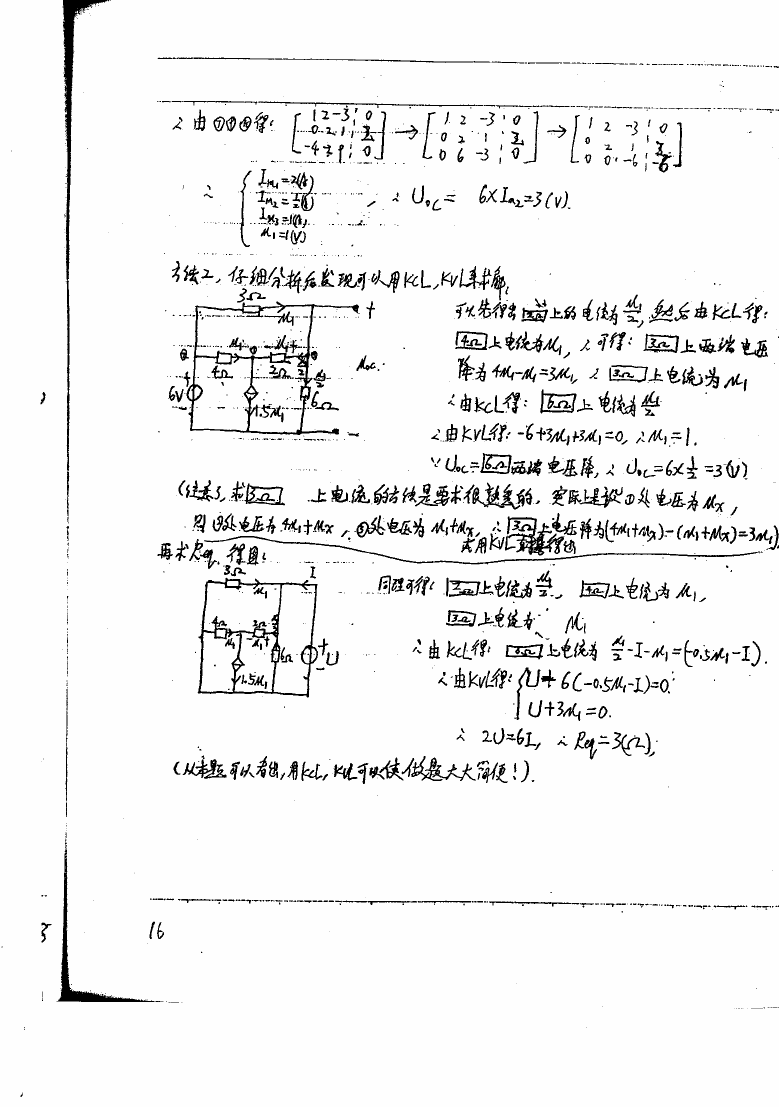 ∴ 由①②③得: [1 2 -3 | 0; 0 2 1 | 3; -4 -2 9 | 0] → [1 2 -3 | 0; 0 2 1 | 3; 0 6 -3 | 0] → [1 2 -3 | 0; 0 2 1 | 3; 0 0 -6 | -6]
∴ { Im₁=2(A)
Im₂=½(A)
Im₃=1(A)
u₁=1(V)
, ∴ Uoc= 6×Im₂=3(V).
方法2, 仔细分析后发现可以用KCL, KVL来求解,
3Ω u₁ +
4Ω u₁ 2Ω u₁+ u₁/2 uoc
6V + - 1.5u₁ 6Ω -
可以先得出 2Ω 上的电流为 u₁/2, 然后由KCL得:
4Ω 上电流为u₁, ∴可得: 3Ω 上两端电压
降为 4u₁-u₁=3u₁, ∴ 3Ω 上电流为 u₁
∴由KCL得: 6Ω 上电流为 u₁/2
∴由KVL得: -6+3u₁+3u₁=0, ∴u₁=1.
∵Uoc=6Ω两端电压降, ∴ Uoc=6×½=3(V)
(注意了, 求 3Ω 上电流的方法是要求很熟悉的, 实际上是设①处电压为ux,
则②处电压为4u₁+ux, ③处电压为u₁+ux, ∴ 3Ω 上电压降为(4u₁+ux)-(u₁+ux)=3u₁)
或用KVL直接得出
再求Req, 得图:
3Ω u₁ I
4Ω u₁ 2Ω u₁+ 6Ω + U -
1.5u₁
同理可得: 2Ω 上电流为 u₁/2, 4Ω 上电流为 u₁,
3Ω 上电流为 u₁
∴由KCL得: 6Ω 上电流为 u₁/2-I-u₁=(-0.5u₁-I).
∴由KVL得: { U+6(-0.5u₁-I)=0.
U+3u₁=0.
∴ 2U=6I, ∴ Req=3(Ω);
(从本题可以看出, 用KCL, KVL可以使做题大大简便!).
16